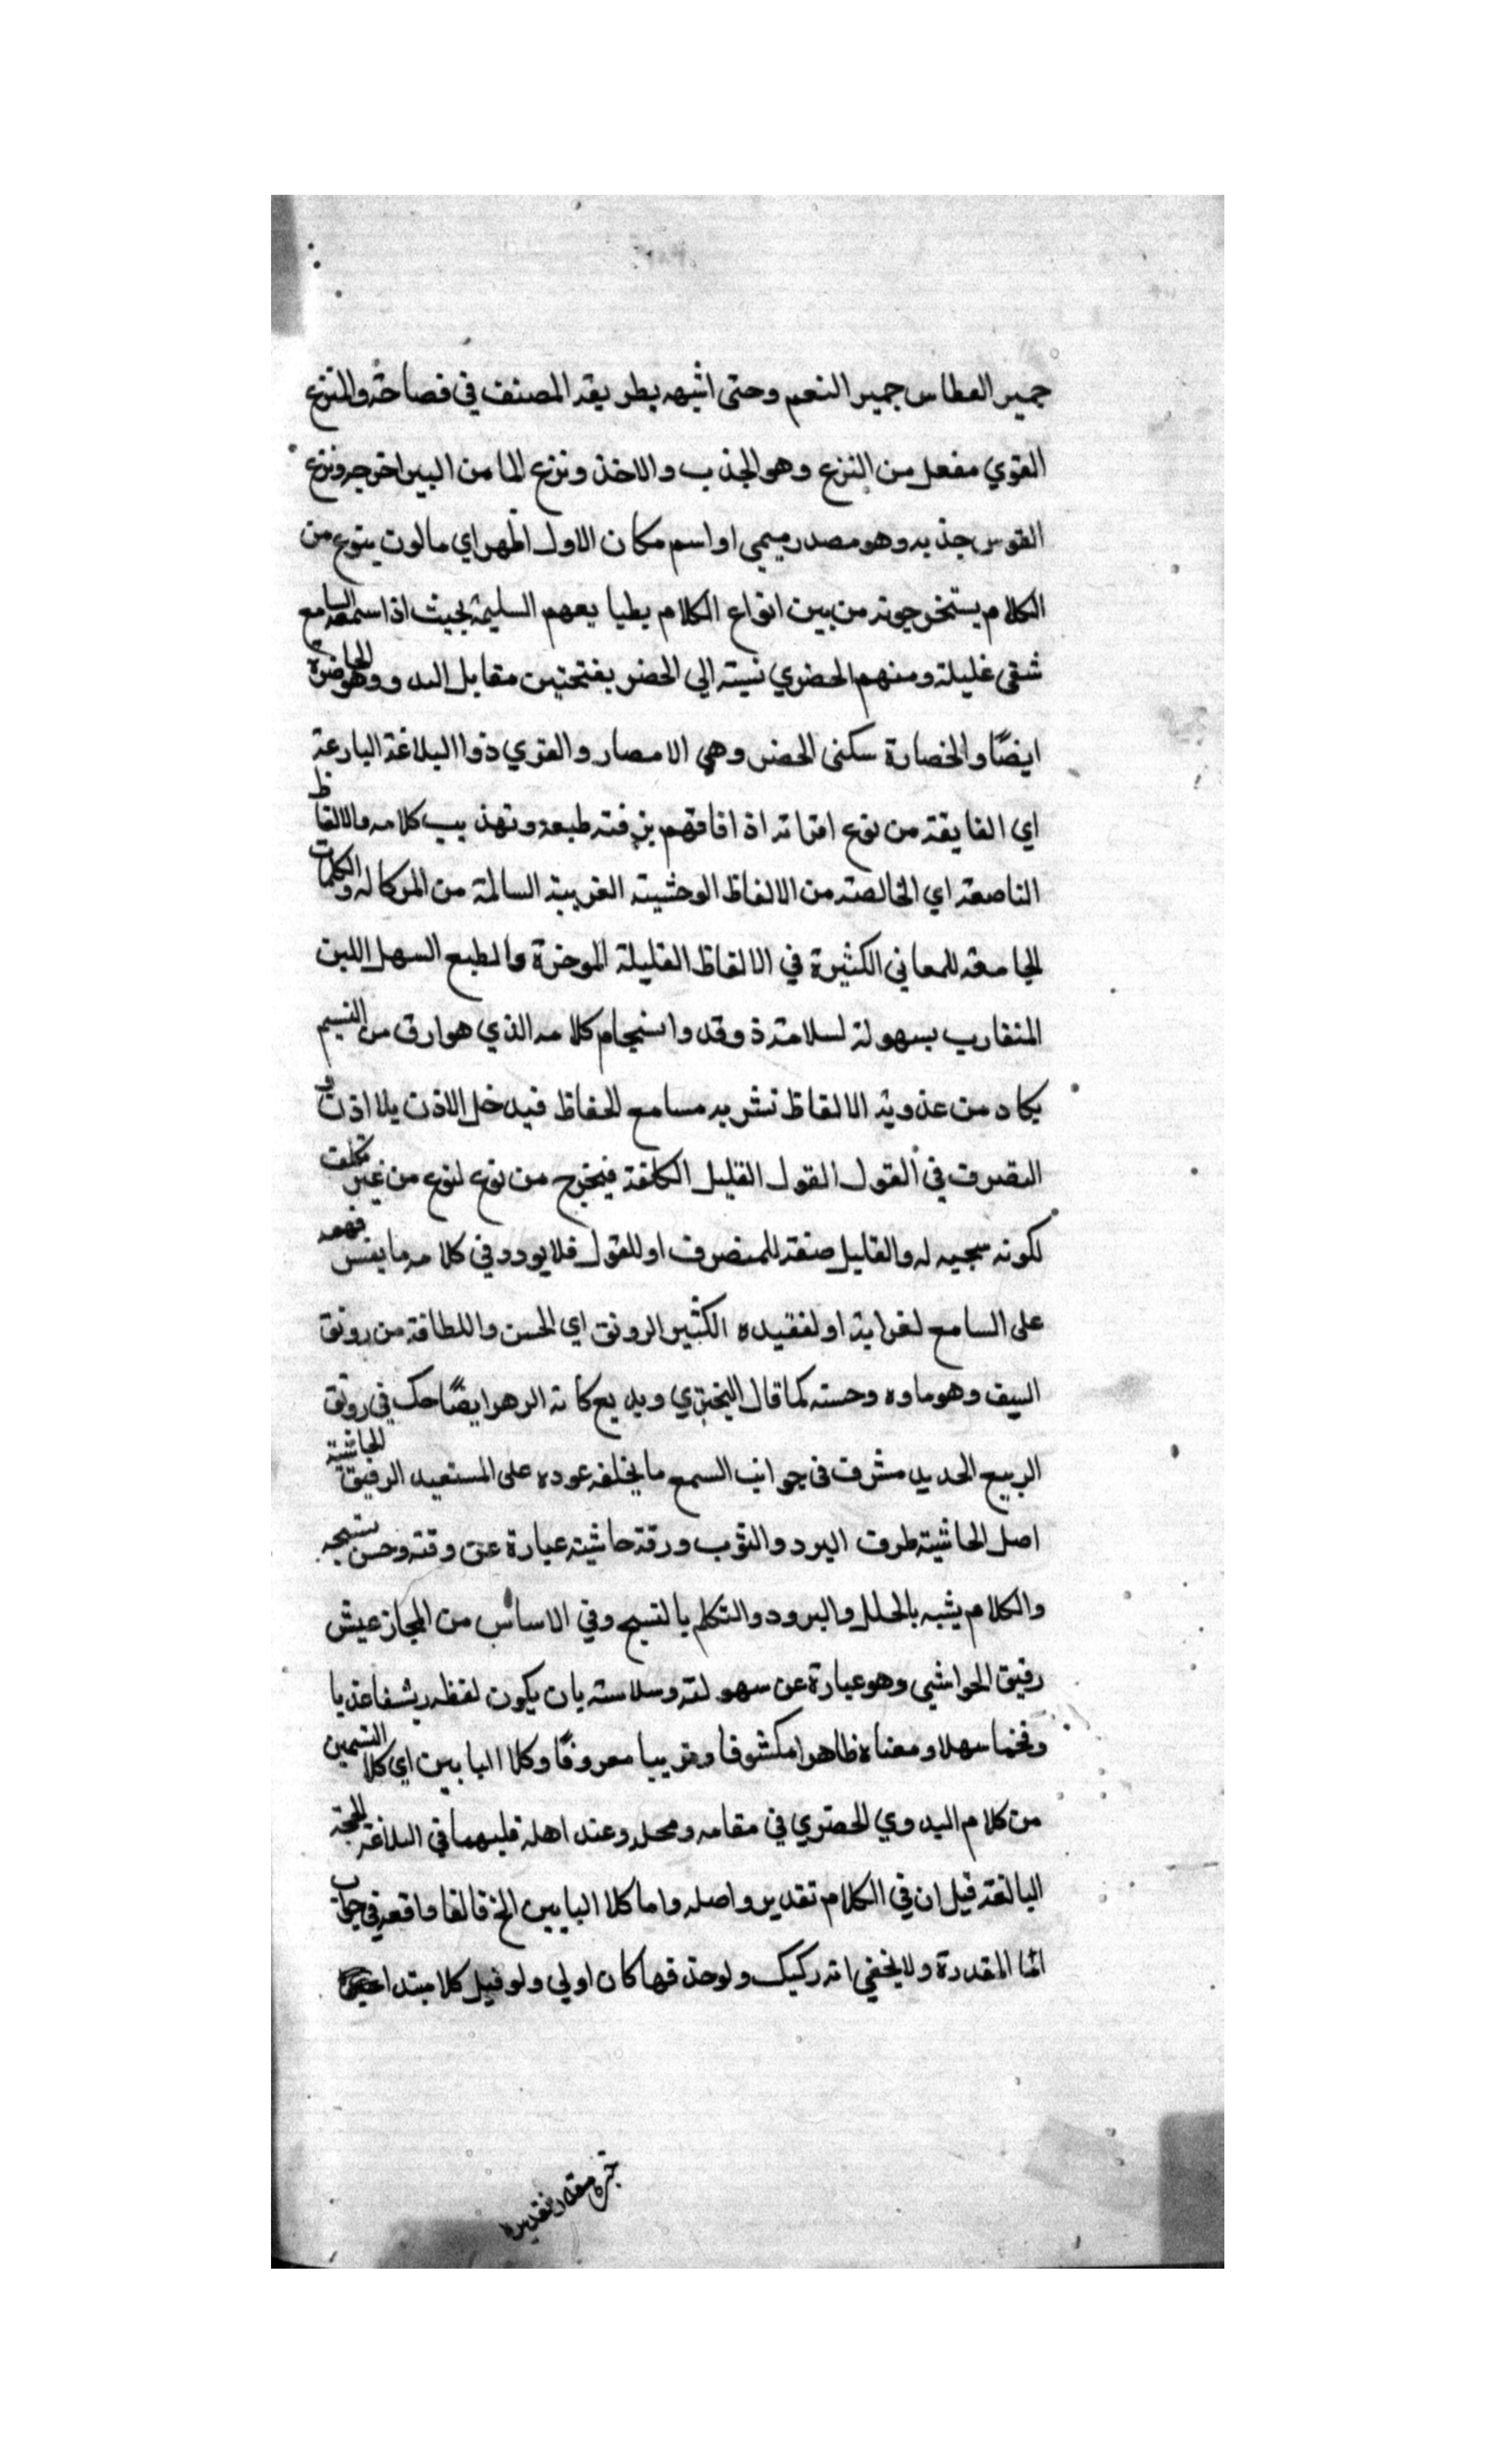 جمير العطاس جمير النعم وحتى اشبهه بطريقة المصنف في فصاحته والمنزع
القوي مفعل من النزع وهو الجذب والاخذ ونزع الما من البير اخرجه ونزع
القوس جذبه وهو مصدر ميمي او اسم مكان الاول اظهر اي مالوت ينزع من
الكلام يستخرجونه من بين انواع الكلام بطبايعهم السليمة بحيث اذا سمعه السامع
شفى غليله ومنهم الحضري نسبته الي الحضر بفتحتين مقابل البدو وهو الحاضرة
ايضًا والحضارة سكنى الحضر وهي الامصار والقري ذوا البلاغة البارعة
اي الفايقة من نوع اقرانه اذا فاقهم بزفته طبعه وتهذيب كلامه والالفاظ
الناصعة اي الخالصة من الالفاظ الوحشيته الغريبة السالمة من الركاله والكلمات
الجامعة للمعاني الكثيرة في الالفاظ القليلة الموجزة والطبع السهل اللين
المتقارب بسهولة لسلامة ذوقه وانسجام كلامه الذي هو ارق من النسيم
يكاد من عذوبة الالفاظ تشربه مسامع الحفاظ فيدخل الاذن بلا اذن و
التصرف في القول القول القليل الكلفة فيخرج من نوع لنوع من غير تكلف
لكونه سجيه له والقليل صفة للمتصرف او للقول فلا يورد في كلامه ما يعسر فهمه
على السامع لغرابته او لفقيده الكثير الرونق اي الحسن واللطافة من رونق
السيف وهو ماوه وحسنه كما قال البختري وبديع كانه الزهر ايضًاحك في رونق
الربيع الحديد مشرق في جوانب السمع ما يخلفه عوده على المستعيد الرقيق الحاشية
اصل الحاشية طرف البرد والثوب ورقة حاشيته عبارة عن وقته وحسن نسجه
والكلام يشبه بالحلل والبرود والتكلم بالنسج وفي الاساس من المجاز عيش
رقيق الحواشي وهو عبارة عن سهولته وسلاسته بان يكون لفظه رشفا عذبا
وفخما سهلا ومعناه ظاهرا مكشوفا وقريبا معروفًا وكلا البابين اي كلا القسمين
من كلام البدوي الحضري في مقامه ومحله وعند اهله فلهما في البلاغة الحجة
البالغة قيل ان في الكلام تقدير واصله واما كلا البابين الخ فالفا واقعة في جواب
اما المقدرة ولا يخفي انه ركيك ولو حذفها كان اولي ولو قيل كلا مبتدا
خبره مقدر تقديره